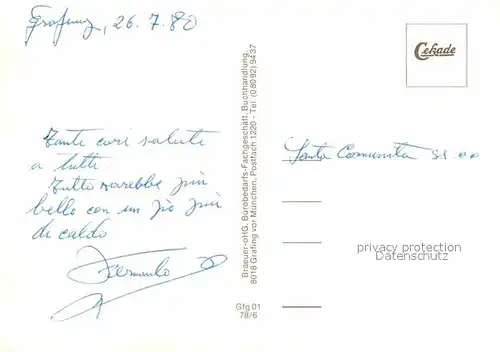 Grafing, 26.7.80
Cekade
Tanti cari saluti
a tutti.
Tutto sarebbe più
bello con un pò più
di caldo
Santa Comunità SS
Braeuer-oHG. Bürobedarfs-Fachgeschäft, Buchhandlung
8018 Grafing vor München, Postfach 1220 - Tel: (08092) 9437
privacy protection
Gfg 01
78/6